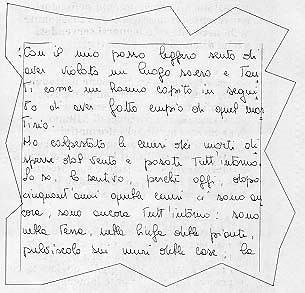 Con il mio passo leggero sento di
aver violato un luogo sacro e tan
ti come me hanno capito in segui
to di aver fatto empio di quel mar
tirio.
Ho calpestato le ceneri dei morti di
sperse dal vento e posate tutt'intorno.
Lo so, lo sentivo, perché oggi, dopo
cinquant'anni quelle ceneri ci sono an
cora, sono ancora tutt'intorno: sono
nella terra, nella linfa delle piante,
pulviscolo sui muri delle case, la